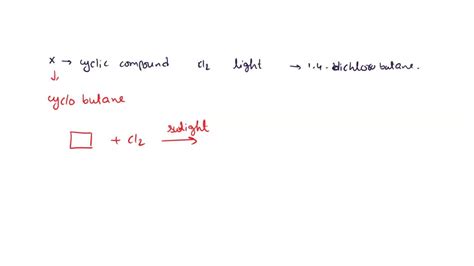 x → cyclic compound Cl2 light → 1.4.dichloro butane.
↓
cyclo butane
+ Cl2 →